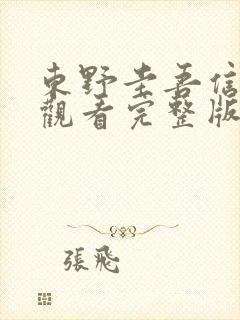 東野圭吾信
觀看完整版
張飛